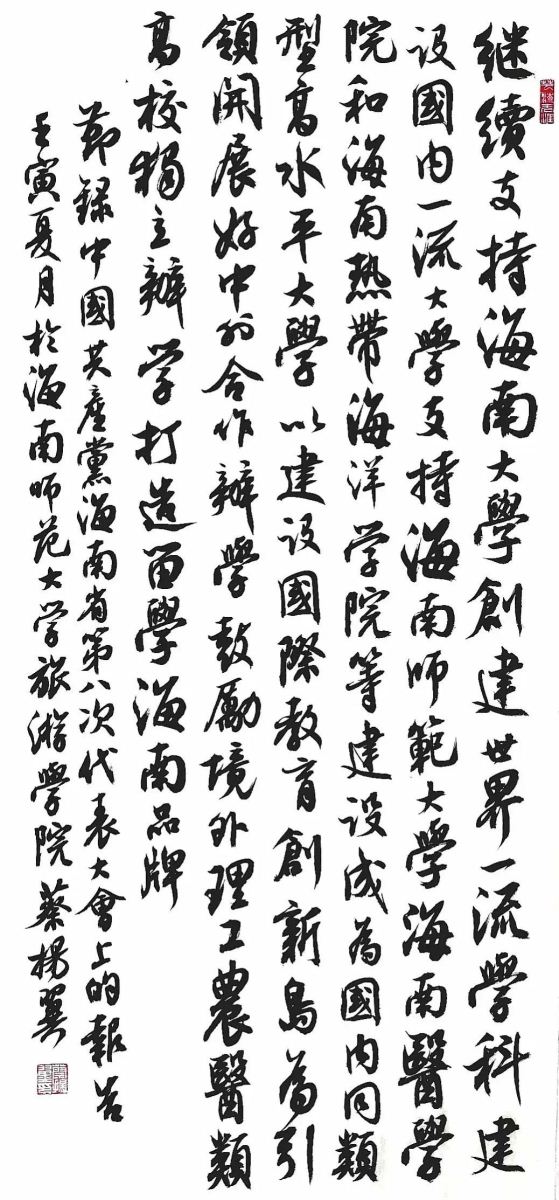 继續支持海南大學創建世界一流學科建
设國内一流大學支持海南师範大學海南醫學
院和海南热帶海洋学院等建设成為國内同類
型高水平大學以建设國際教育創新島為引
領開展好中外合作辦學鼓勵境外理工農醫類
高校獨立辦学打造留學海南品牌
節録中國共產黨海南省第八次代表大會上的報告
壬寅夏月於海南师范大学旅游學院蔡楊